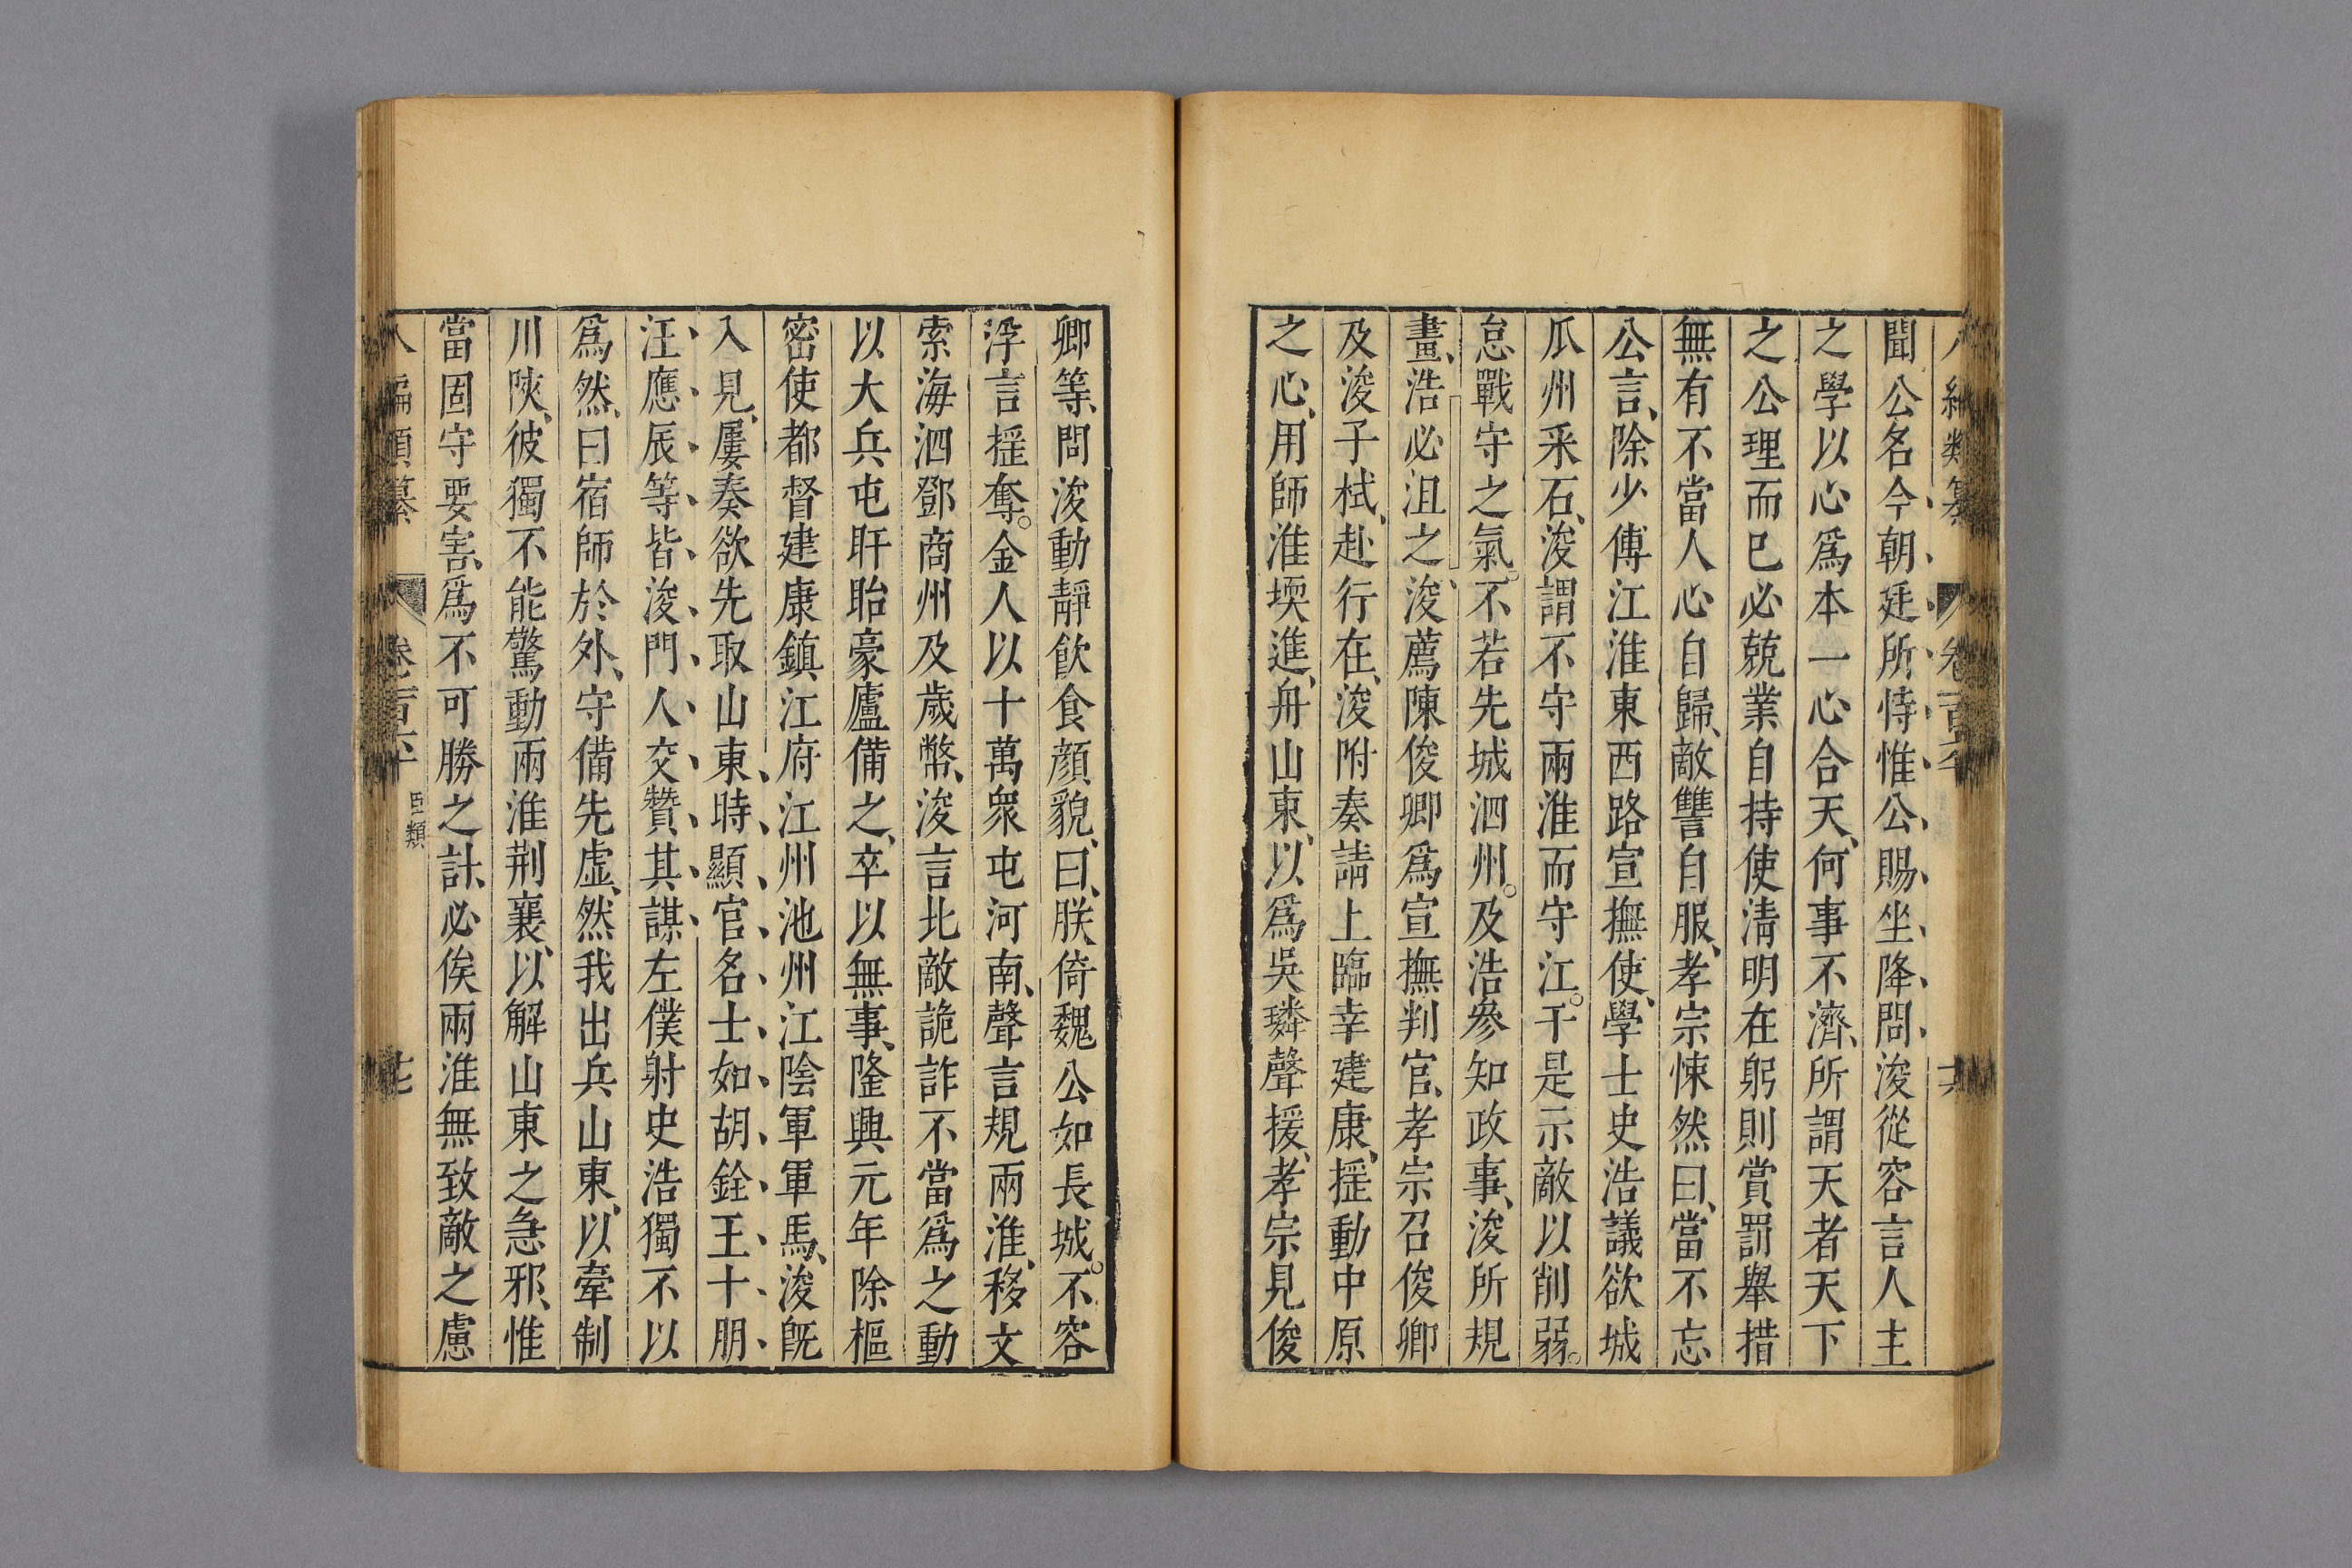 聞公名今朝廷所恃惟公賜坐降問浚從容言人主
之學以心爲本一心合天何事不濟所謂天者天下
之公理而已必兢業自持使清明在躬則賞罰舉措
無有不當人心自歸敵讐自服孝宗悚然曰當不忘
公言除少傅江淮東西路宣撫使學士史浩議欲城
瓜州采石浚謂不守兩淮而守江干是示敵以削弱
怠戰守之氣不若先城泗州及浩參知政事浚所規
畫浩必沮之浚薦陳俊卿爲宣撫判官孝宗召俊卿
及浚子栻赴行在浚附奏請上臨幸建康揺動中原
之心用師淮堧進舟山東以爲吳璘聲援孝宗見俊
卿等問浚動靜飮食顏貌曰朕倚魏公如長城不容
浮言揺奪金人以十萬衆屯河南聲言規兩淮移文
索海泗鄧商州及歲幣浚言北敵詭詐不當爲之動
以大兵屯盱眙豪廬備之卒以無事隆興元年除樞
密使都督建康鎮江府江州池州江陰軍軍馬浚旣
入見屢奏欲先取山東時顯官名士如胡銓王十朋
汪應辰等皆浚門人交贊其謀左僕射史浩獨不以
爲然曰宿師於外守備先虛然我出兵山東以牽制
川陝彼獨不能驚動兩淮荆襄以解山東之急邪惟
當固守要害爲不可勝之計必俟兩淮無致敵之慮
八編類纂 卷一百六 臣類